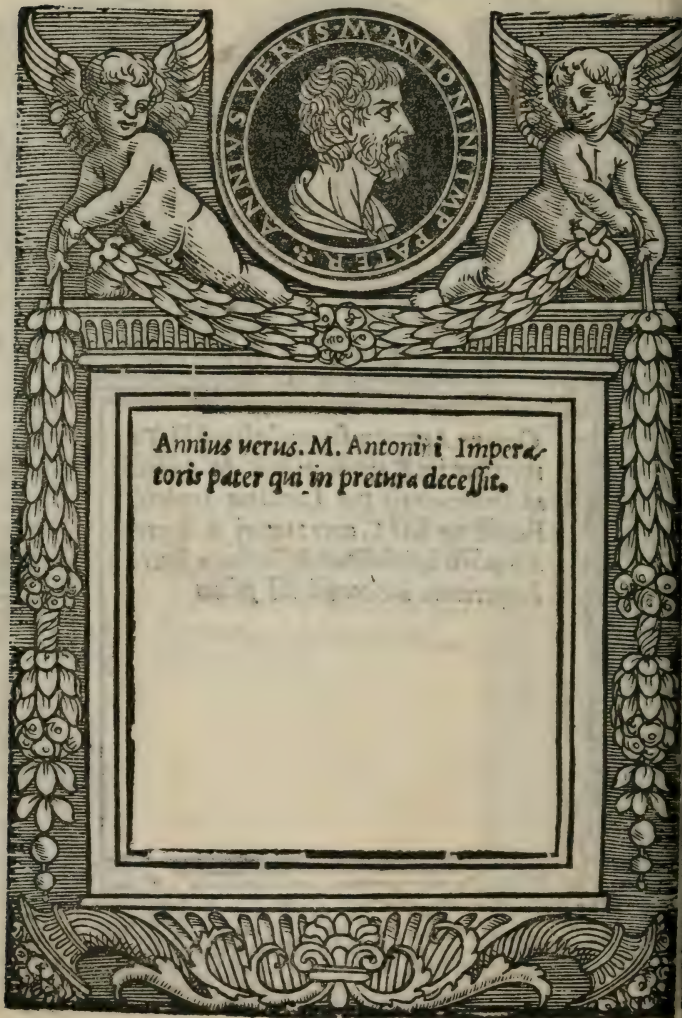 ANNIVS·VERVS·M·ANTONINI·IMP·PATER
Annius uerus. M. Antonini Impera-
toris pater qui in pretura decessit.